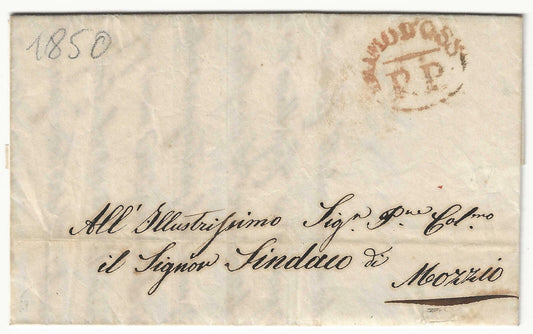 1850
DOMODOSSA
P.P.
All' Illustrissimo Sigr. Pne Colmo
il Signor Sindaco di
Mozzio